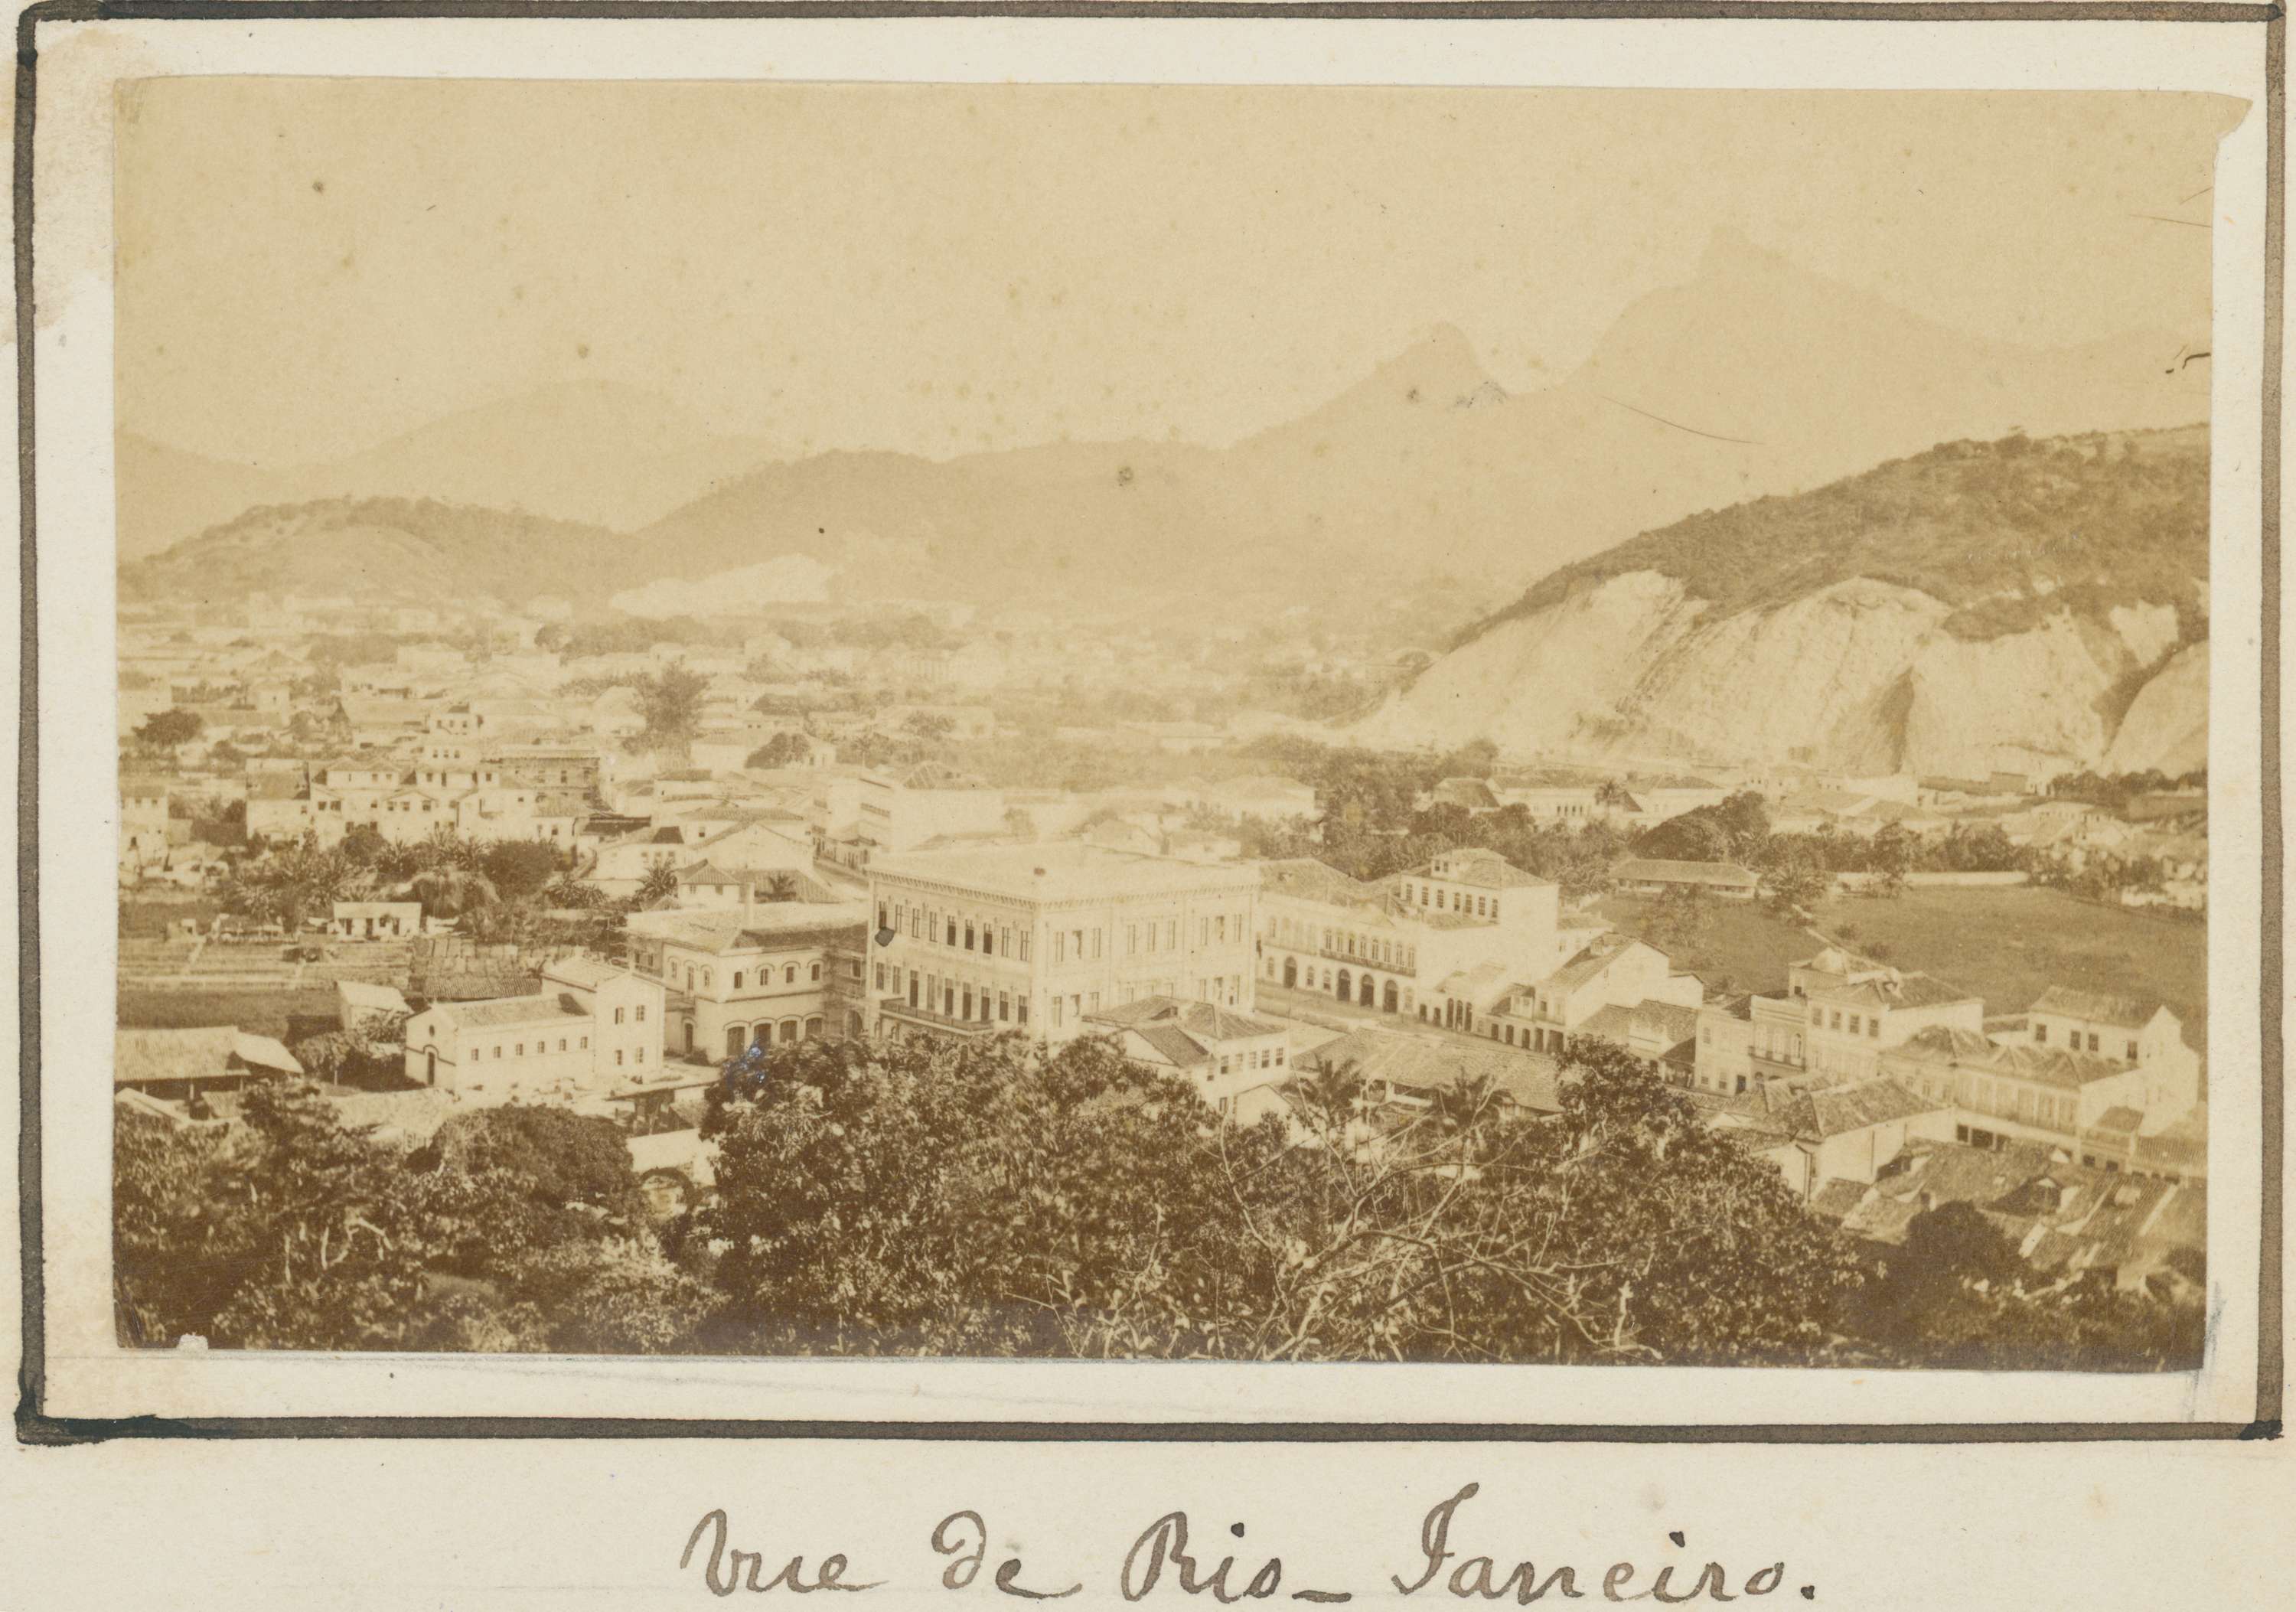 Vue de Rio-Janeiro.